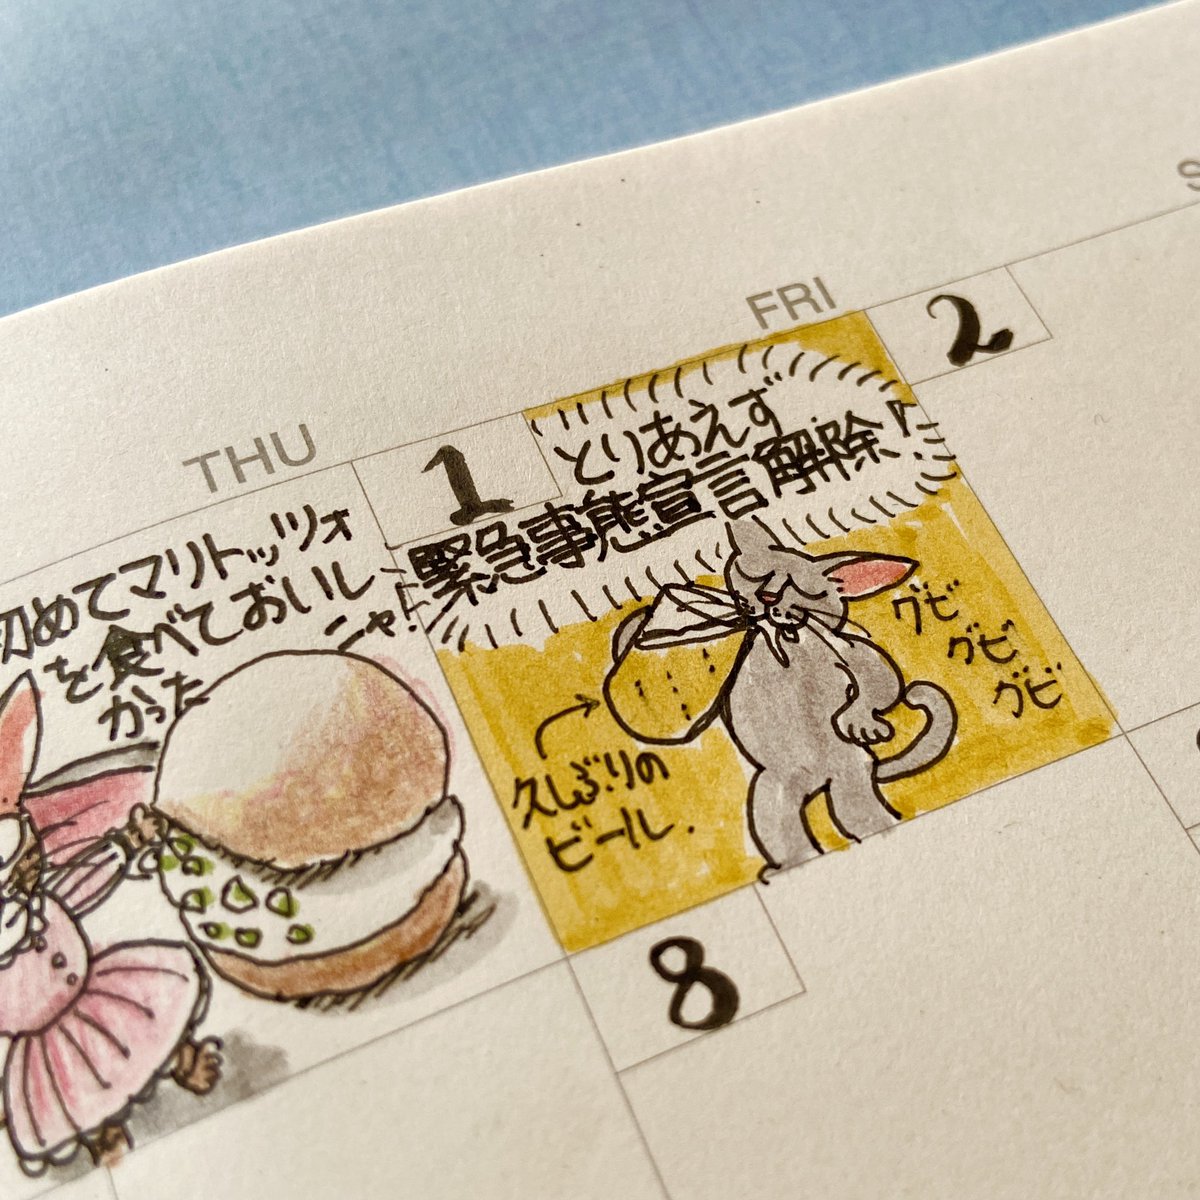 THU
FRI
S
1
2
8
初めてマリトッツォ
を食べておいし
かった
ニャ!
とりあえず
緊急事態宣言解除!
グビ
グビ
グビ
久しぶりの
ビール.